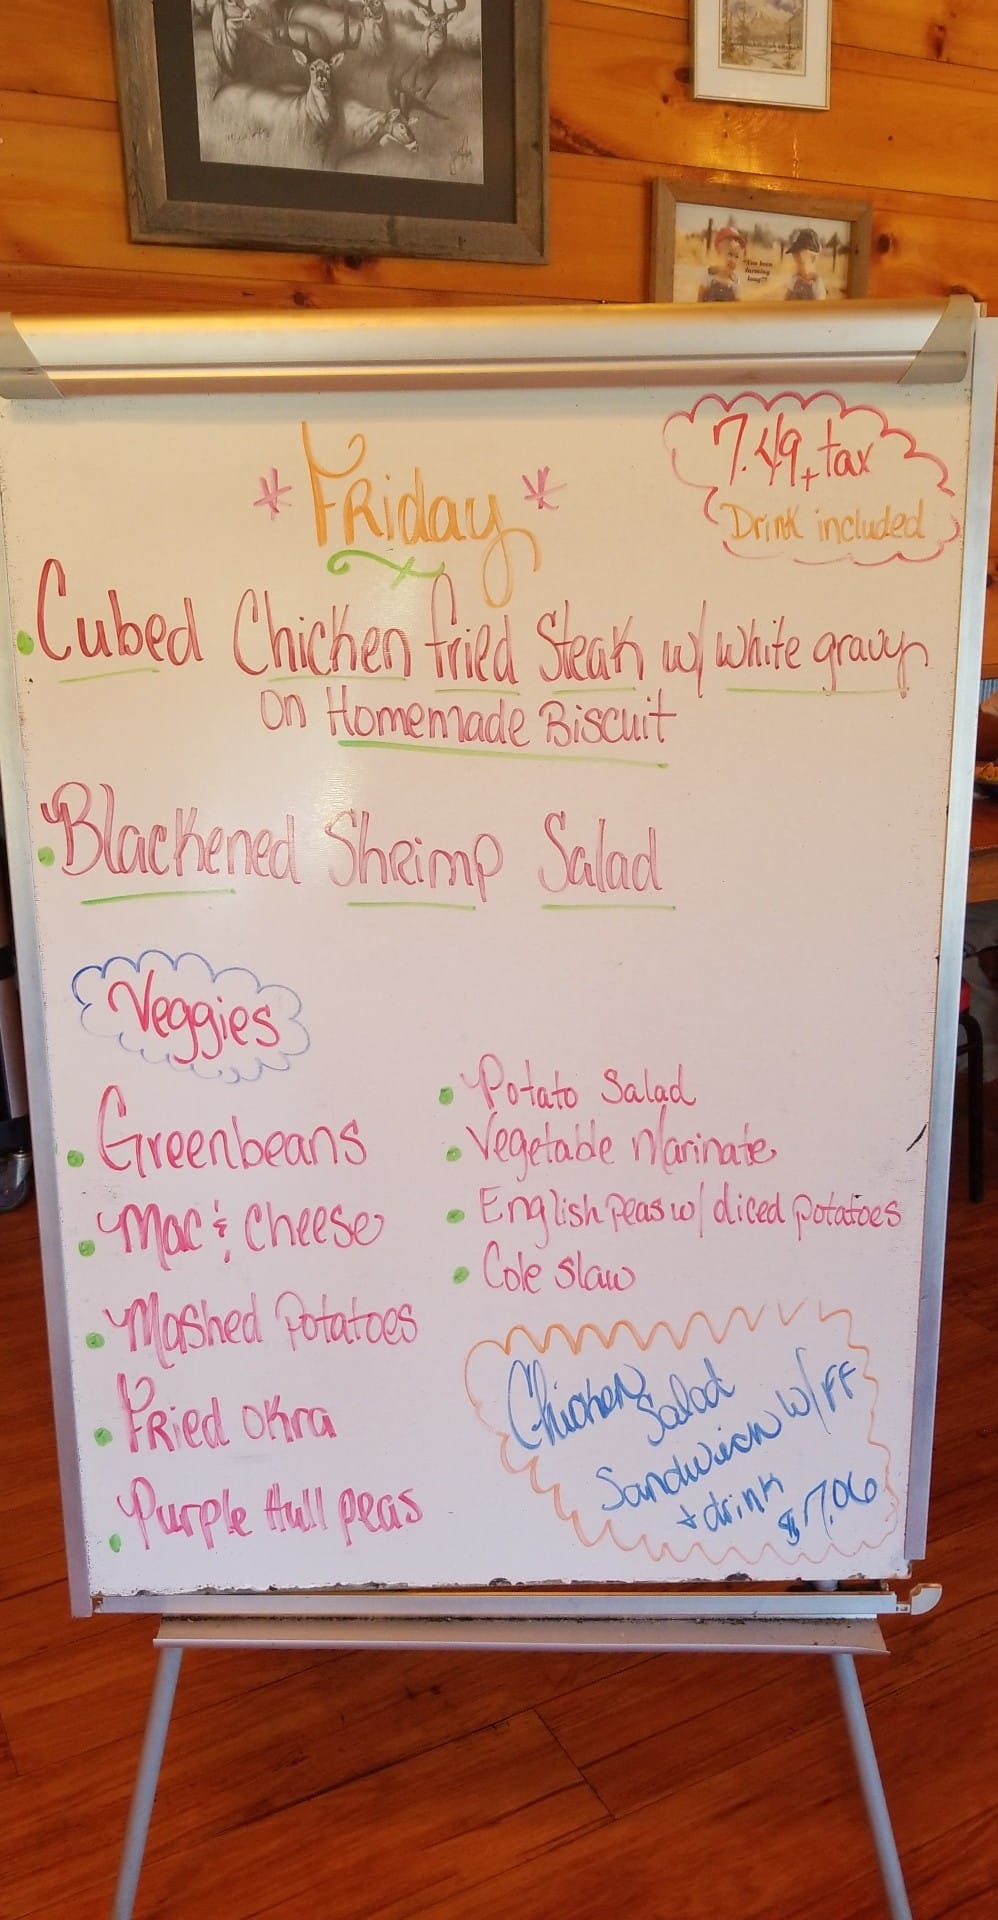 "You been
farming
long?"
7.49 + tax
Drink included
* Friday *
Cubed Chicken fried Steak w/ white gravy
on Homemade Biscuit
Blackened Shrimp Salad
Veggies
Greenbeans
Mac & Cheese
Mashed Potatoes
Fried Okra
Purple Hull peas
Potato Salad
Vegetable Marinate
English peas w/ diced potatoes
Cole slaw
Chicken
Salad
Sandwich w/ FF
+ drink
$7.06